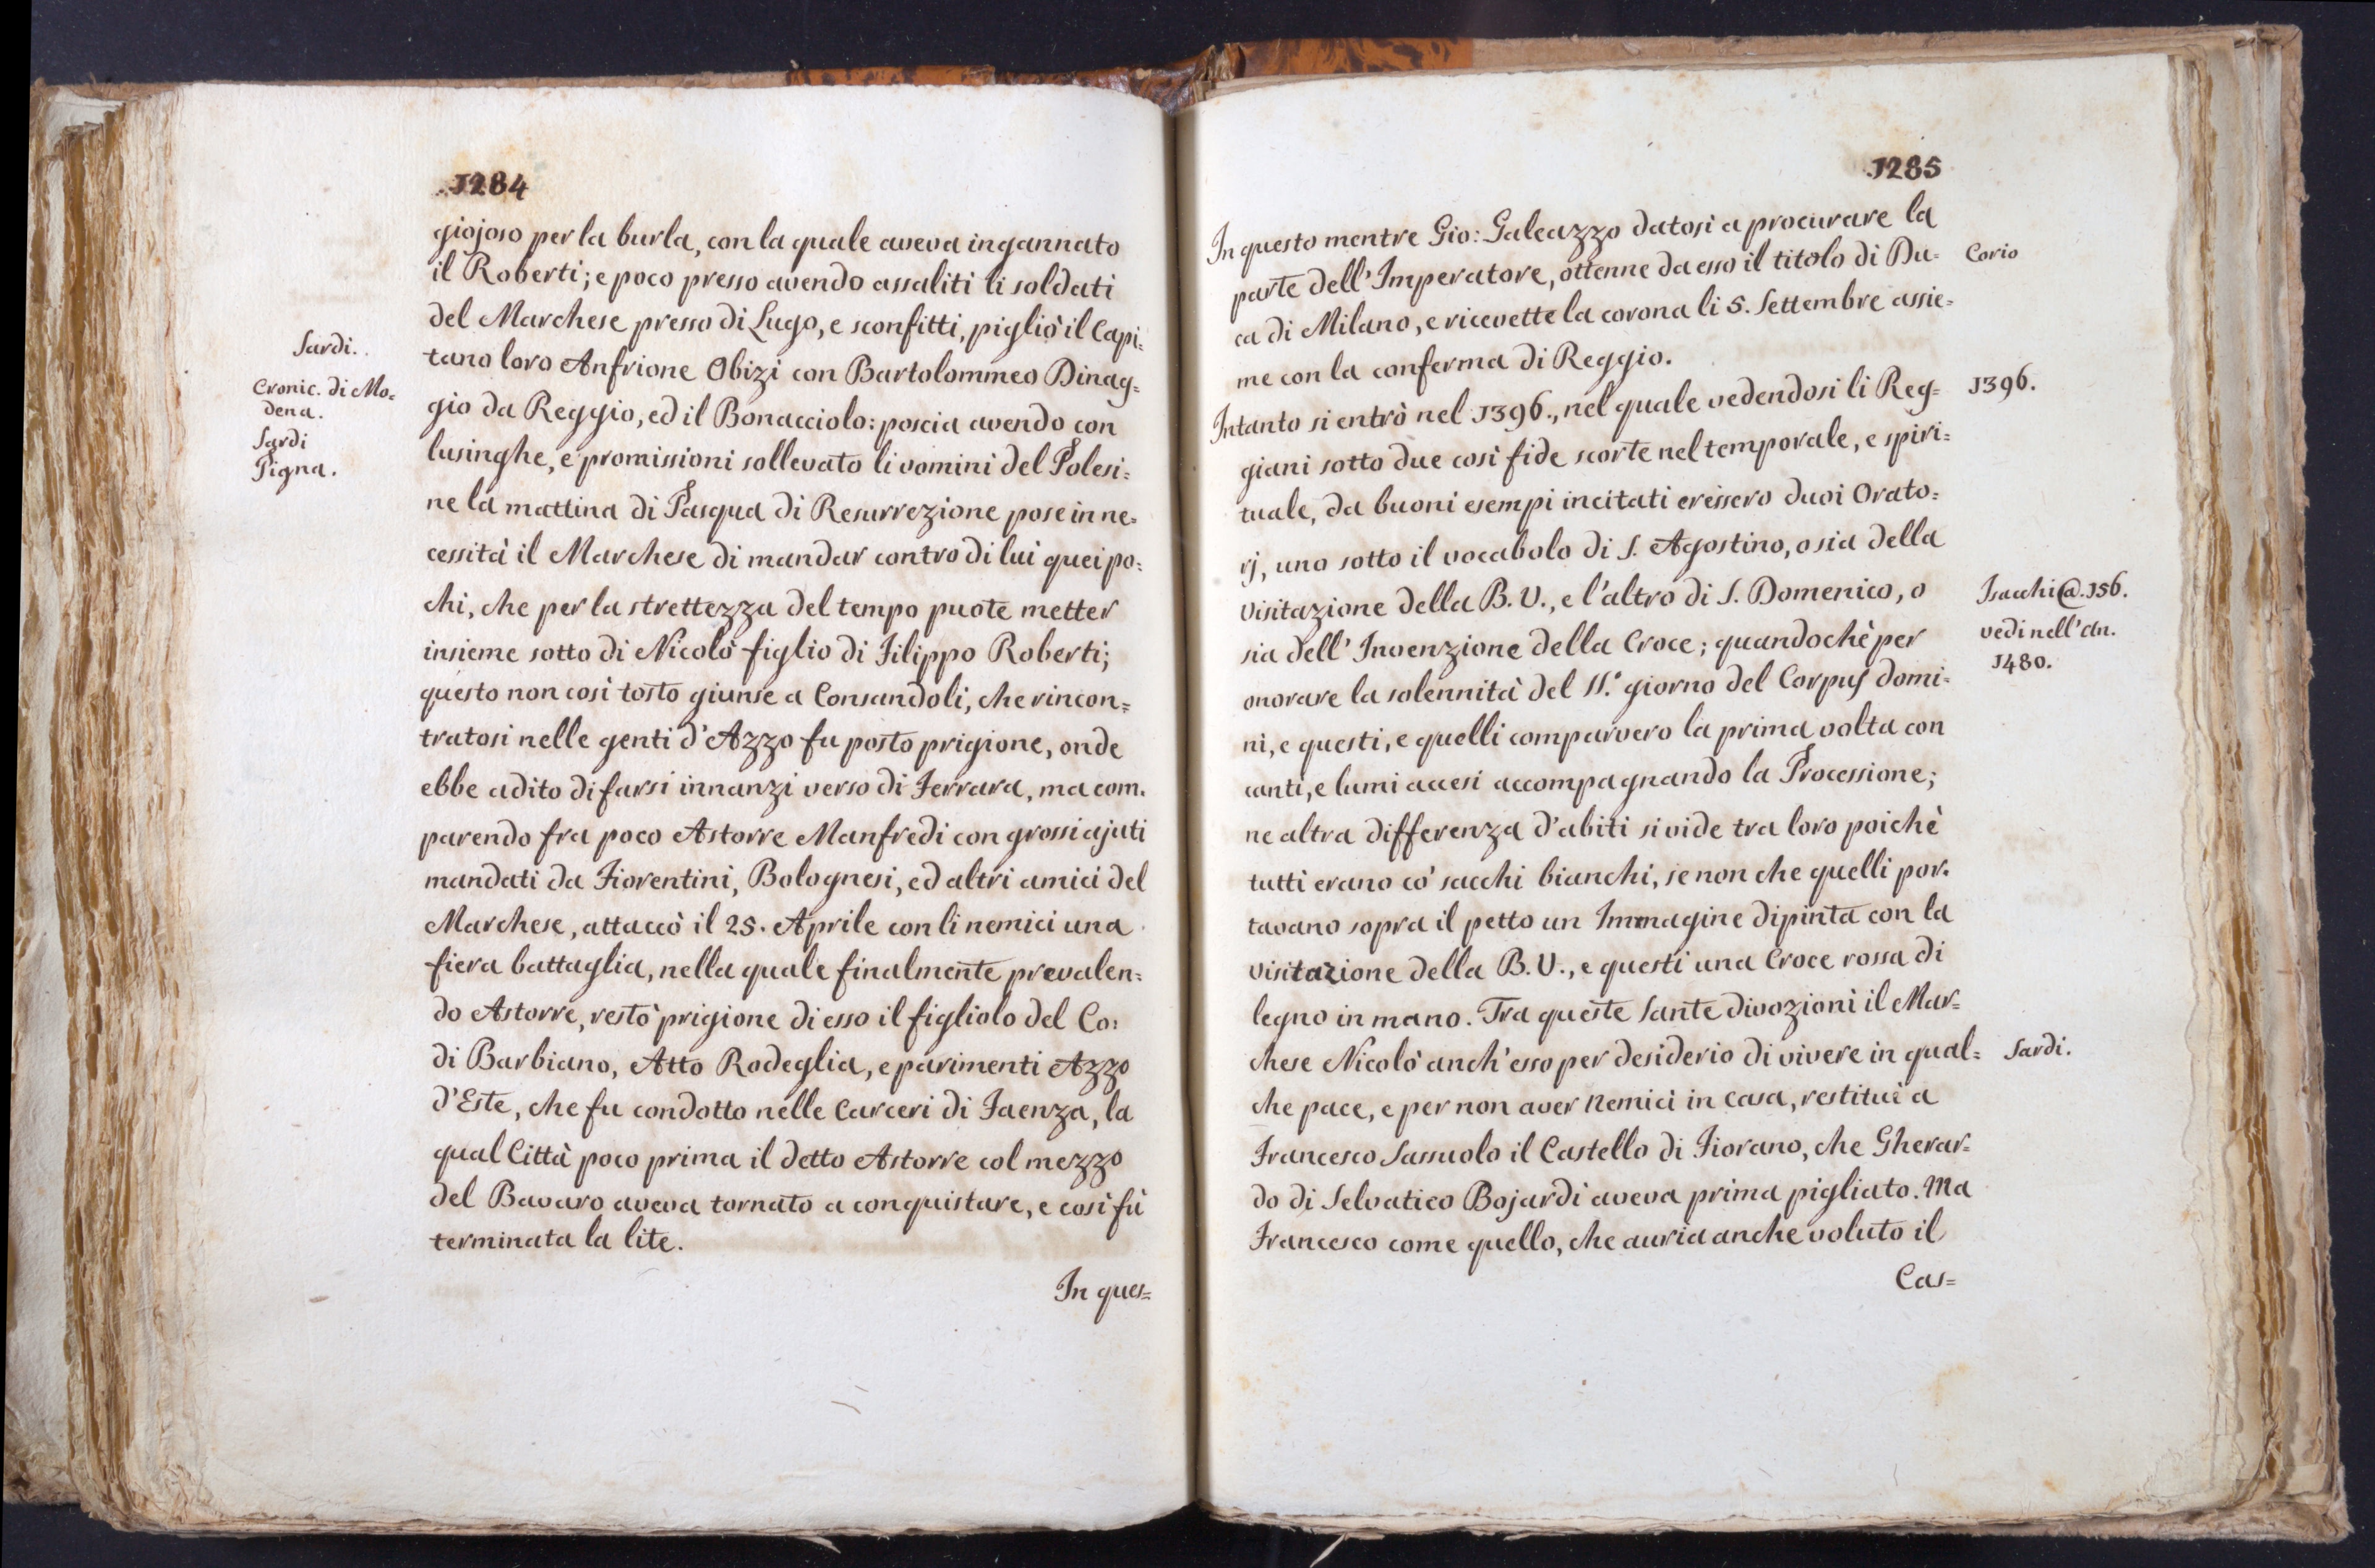 1284
giojoso per la burla, con la quale aveva ingannato
il Roberti; e poco presso avendo assaliti li soldati
del Marchese presso di Lugo, e sconfitti, pigliò il Capi=
Sardi.
tano loro Anfrione Obizi con Bartolommeo Dinag=
Cronic. di Mo=
dena.
gio da Reggio, ed il Bonacciolo: poscia avendo con
Sardi
Pigna.
lusinghe, e promissioni sollevato li uomini del Polesi=
ne la mattina di Pasqua di Resurrezione pose in ne=
cessità il Marchese di mandar contro di lui quei po=
chi, che per la strettezza del tempo puote metter
insieme sotto di Nicolò figlio di Filippo Roberti;
questo non così tosto giunse a Consandoli, che rincon=
tratosi nelle genti d'Azzo fu posto prigione, onde
ebbe adito di farsi innanzi verso di Ferrara, ma com=
parendo fra poco Astorre Manfredi con grossi ajuti
mandati da Fiorentini, Bolognesi, ed altri amici del
Marchese, attaccò il 25. Aprile con li nemici una
fiera battaglia, nella quale finalmente prevalen=
do Astorre, restò prigione di esso il figliolo del Co:
di Barbiano, Atto Rodeglia, e parimenti Azzo
d'Este, che fu condotto nelle Carceri di Faenza, la
qual Città poco prima il detto Astorre col mezzo
del Bavaro aveva tornato a conquistare, e così fù
terminata la lite.
In ques=
1285
In questo mentre Gio: Galeazzo datosi a procurare la
parte dell'Imperatore, ottenne da esso il titolo di Du=
Corio
ca di Milano, e ricevette la corona li 5. Settembre assie=
me con la conferma di Reggio.
Intanto si entrò nel 1396., nel quale vedendosi li Reg=
1396.
giani sotto due così fide scorte nel temporale, e spiri=
tuale, da buoni esempi incitati eressero duoi Orato=
rj, uno sotto il vocabolo di S. Agostino, o sia della
visitazione della B. V., e l'altro di S. Domenico, o
Isacchi @. 156.
sia dell'Invenzione della Croce; quandochè per
vedi nell'An.
1480.
onorare la solennità del SS.º giorno del Corpus domi=
ni, e questi, e quelli comparvero la prima volta con
canti, e lumi accesi accompagnando la Processione;
ne altra differenza d'abiti si vide tra loro poichè
tutti erano co' sacchi bianchi, se non che quelli por=
tavano sopra il petto un Immagine dipinta con la
visitazione della B. V., e questi una Croce rossa di
legno in mano. Tra queste Sante divozioni il Mar=
chese Nicolò anch'esso per desiderio di vivere in qual=
Sardi.
che pace, e per non aver nemici in casa, restituì a
Francesco Sassuolo il Castello di Fiorano, che Gherar=
do di Selvatico Bojardi aveva prima pigliato. Ma
Francesco come quello, che auria anche voluto il
Cas=